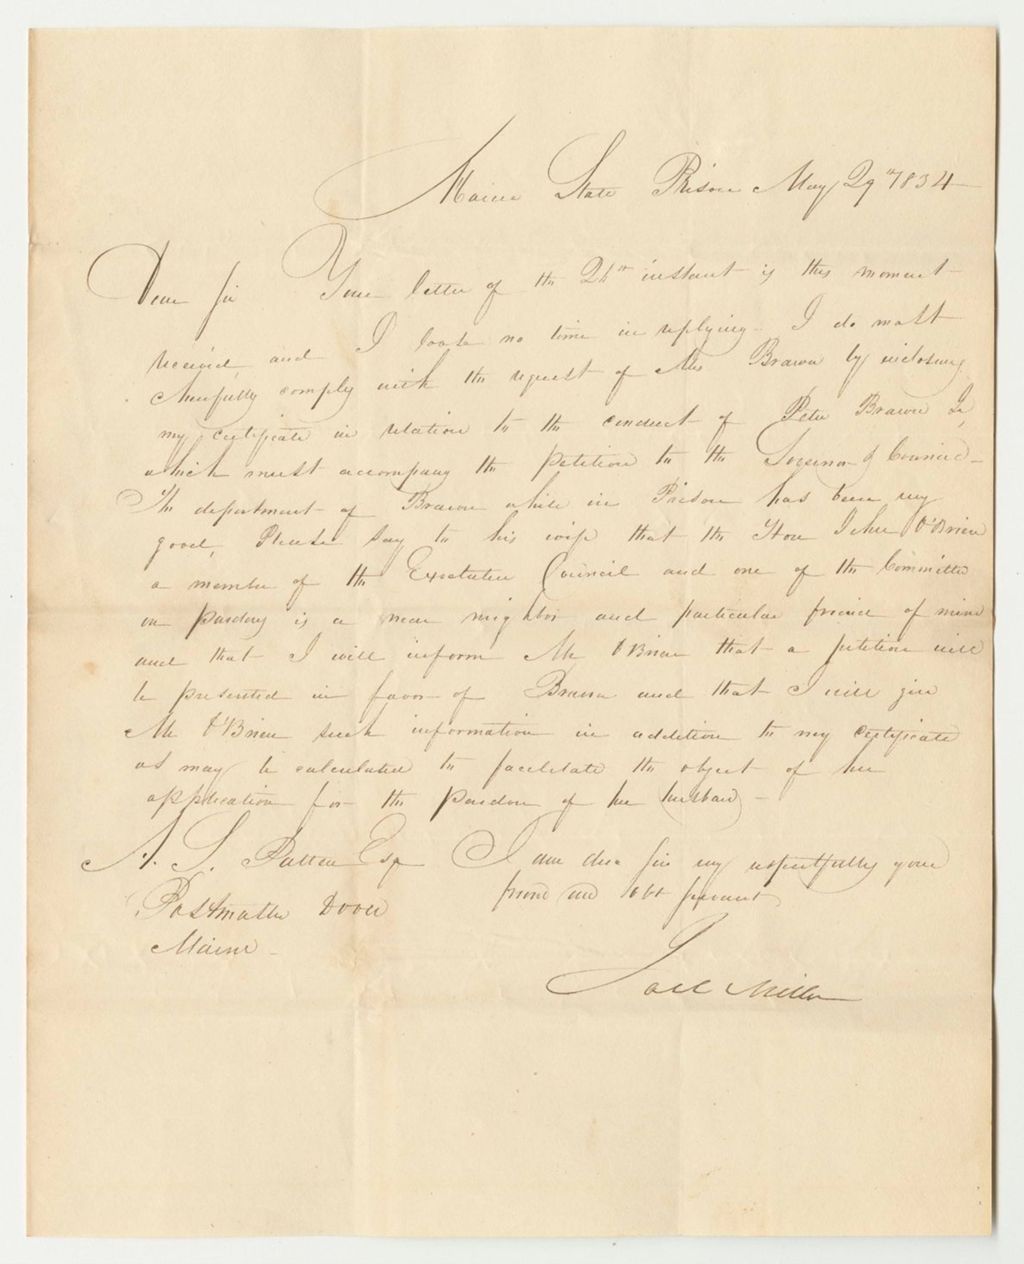 Maine State Prison May 29th 1834
Dear Sir Your letter of the 24th instant is this moment
received and I loose no time in replying. I do most
chearfully comply with the request of Mrs Brown by inclosing
my certificate in relation to the conduct of Peter Brown Jr,
which must accompany the petition to the Governor & Council
The deportment of Brown while in Prison has been very
good, Please say to his wife that the Hon John O'Brien
a member of the Executive Council and one of the Committee
on pardons is a near neighbor and particular friend of mine
and that I will inform Mr O'Brien that a petition will
be presented in favor of Brown and that I will give
Mr O'Brien such information in addition to my certificate
as may be calculated to facilitate the object of her
application for the pardon of her husband
I am dear Sir very respectfully your
friend and obt servant
Joel Miller
A. S. Patten Esq
Postmaster Dover
Maine